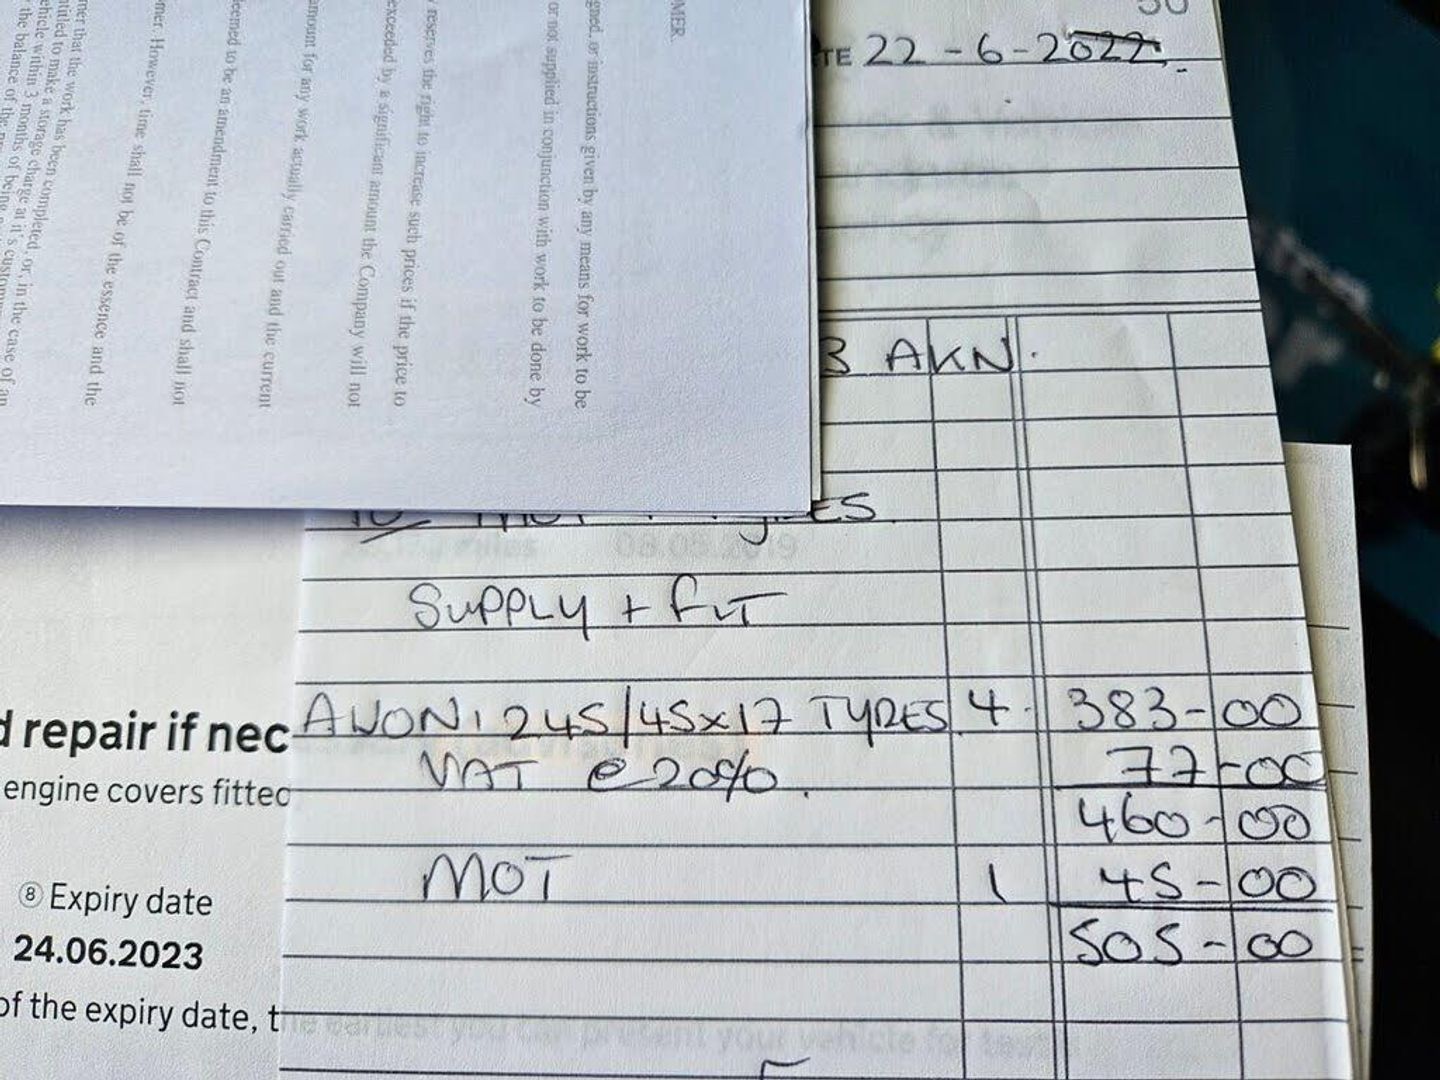 MER.
gned, or instructions given by any means for work to be
or not supplied in conjunction with work to be done by
reserves the right to increase such prices if the price to
exceeded by a significant amount the Company will not
amount for any work actually carried out and the current
deemed to be an amendment to this Contract and shall not
mer. However, time shall not be of the essence and the
mer that the work has been completed, or, in the case of an
ntitled to make a storage charge at it's
ehicle within 3 months of being
the balance of the
TE 22-6-2022.
3 AKN.
YRES
08.05.2019
SUPPLY + FIT
AVON 245/45x17 TYRES 4 383-00
VAT @ 20% 77-00
460-00
MOT 1 45-00
505-00
d repair if nec
engine covers fitted
8 Expiry date
24.06.2023
of the expiry date, the earliest you can present your vehicle for test